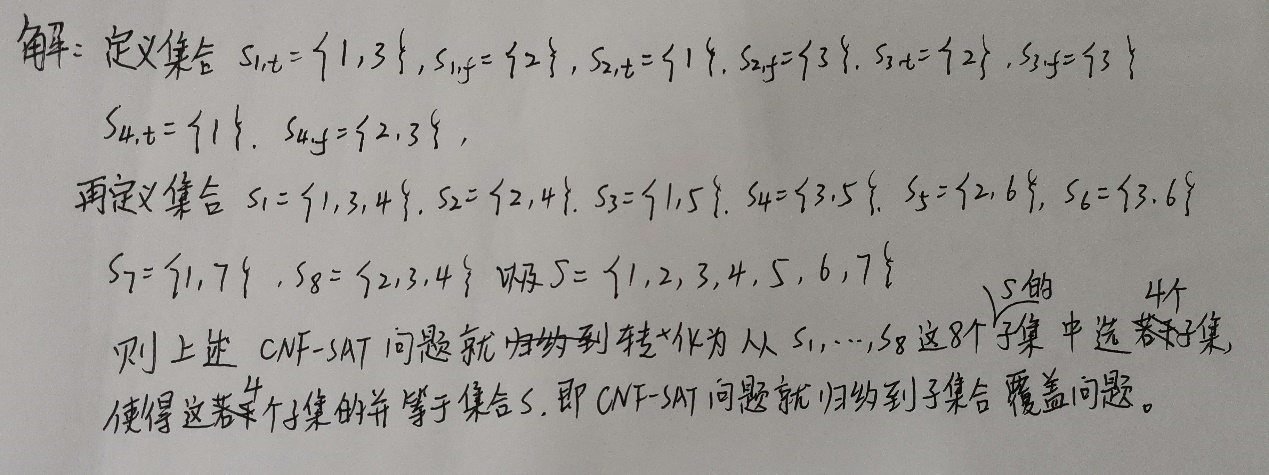 解：定义集合 S1,t={1,3}, S1,f={2}, S2,t={1}. S2,f={3}. S3,t={2}. S3,f={3}
S4,t={1}. S4,f={2,3},
再定义集合 S1={1,3,4}. S2={2,4}. S3={1,5}. S4={3.5}. S5={2,6}, S6={3.6}
S7={1,7}. S8={2,3,4} 以及S={1,2,3,4,5,6,7}
则上述 CNF-SAT 问题就转化为从 S1,…,S8 这8个S的子集中选4个子集,
使得这4个子集的并等于集合S. 即CNF-SAT问题就归约到子集合覆盖问题。